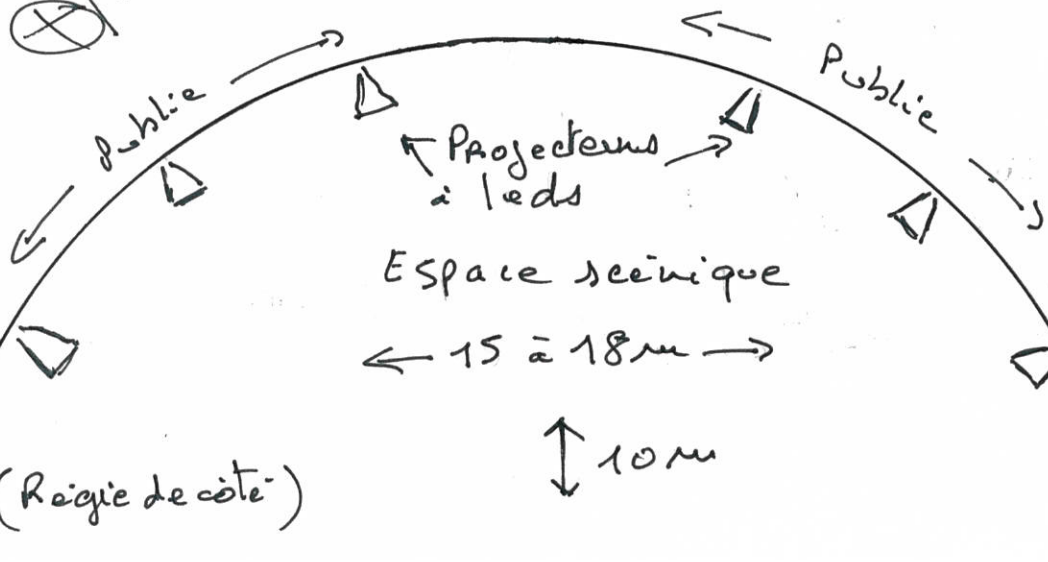 Public
Public
Projecteurs
à leds
Espace scénique
15 à 18m
10 m
(Régie de côté)